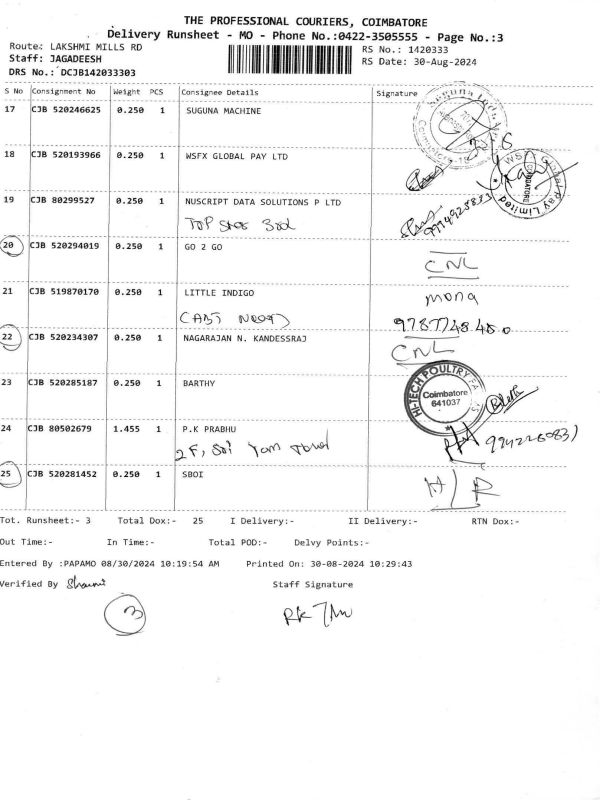 THE PROFESSIONAL COURIERS, COIMBATORE
Delivery Runsheet - MO - Phone No.:0422-3505555 - Page No.:3
Route: LAKSHMI MILLS RD RS No.: 1420333
Staff: JAGADEESH RS Date: 30-Aug-2024
DRS No.: DCJB142033303
S No Consignment No Weight PCS Consignee Details Signature
17 CJB 520246625 0.250 1 SUGUNA MACHINE
Coimbatore-18
18 CJB 520193966 0.250 1 WSFX GLOBAL PAY LTD
WSFX Global Pay Limited
COIMBATORE
19 CJB 80299527 0.250 1 NUSCRIPT DATA SOLUTIONS P LTD
TOP 3rd
20 CJB 520294019 0.250 1 GO 2 GO
CNL
21 CJB 519870170 0.250 1 LITTLE INDIGO
mona
22 CJB 520234307 0.250 1 NAGARAJAN N. KANDESSRAJ
CNL
23 CJB 520285187 0.250 1 BARTHY
HI-TECH POULTRY
Coimbatore
641037
24 CJB 80502679 1.455 1 P.K PRABHU
2F,
25 CJB 520281452 0.250 1 SBOI
H/R
Tot. Runsheet:- 3 Total Dox:- 25 I Delivery:- II Delivery:- RTN Dox:-
Out Time:- In Time:- Total POD:- Delvy Points:-
Entered By :PAPAMO 08/30/2024 10:19:54 AM Printed On: 30-08-2024 10:29:43
Verified By Staff Signature
3